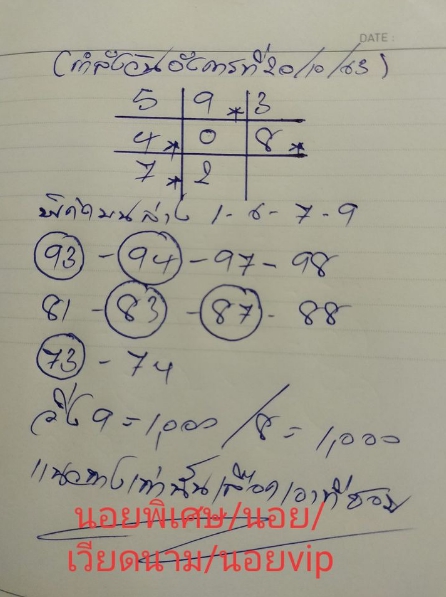 DATE :
(กำลังวันอังคารที่20/10/63)
5 9* 3
4* 0 8*
7* 2
พิกัดบนล่าง 1-6-7-9
93-94-97-98
81-83-87-88
73-74
วิ่ง 9=1,000/8=1,000
แนวทางเท่านั้นเลือกเอาที่ชอบ
นอยพิเศษ/นอย/
เวียดนาม/นอยvip